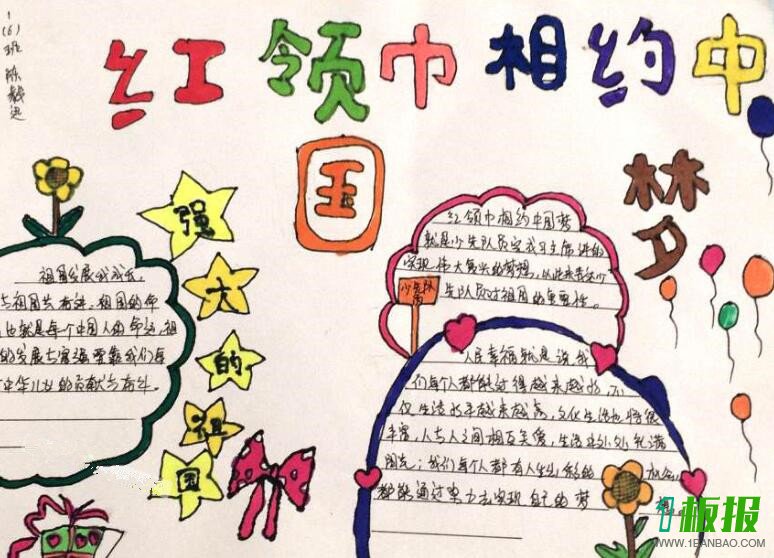 1(6)班 陈毅迅
红领巾相约中
国
梦
强
大
的
祖
国
红领巾相约中国梦
就是少先队员完成习主席讲的
实现伟大复兴的梦想,
生队员对祖国的重要性。
少先队
祖国发展我成长,
与祖国共奋进,祖国的命
也就是每个中国人的命运,祖
的发展与富强要靠我们每
中华儿女的贡献与奋斗。
人民幸福就是说,我
们每个人都能过得越来越好,不
仅生活水平越来越高,文化生活也将很
丰富,人与人之间相互关爱,生活处处充满
阳光;我们每个人都有人生出彩的机会,
都能通过努力去实现自己的梦
想。
板报
WWW.1BANBAO.COM